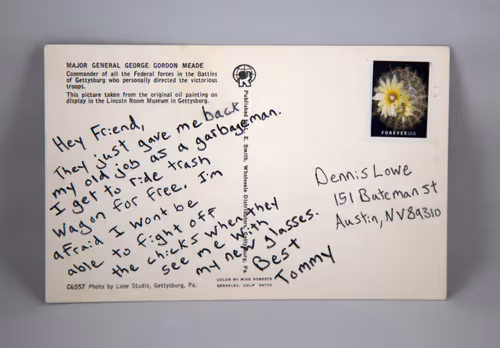 MAJOR GENERAL GEORGE GORDON MEADE
Commander of all the Federal forces in the Battles
of Gettysburg who personally directed the victorious
troops.
This picture taken from the original oil painting on
display in the Lincoln Room Museum in Gettysburg.
Hey Friend,
They just gave me back
my old job as a garbageman.
I get to ride trash
wagon for free. I'm
afraid I wont be
able to fight off
the chicks when they
see me with
my new glasses.
Best
Tommy
C6557 Photo by Lane Studio, Gettysburg, Pa.
Published by L. E. Smith, Wholesale Distributor, Gettysburg, Pa.
COLOR BY MIKE ROBERTS
BERKELEY, CALIF 94710
FOREVER USA
Dennis Lowe
151 Bateman st
Austin, NV 89310